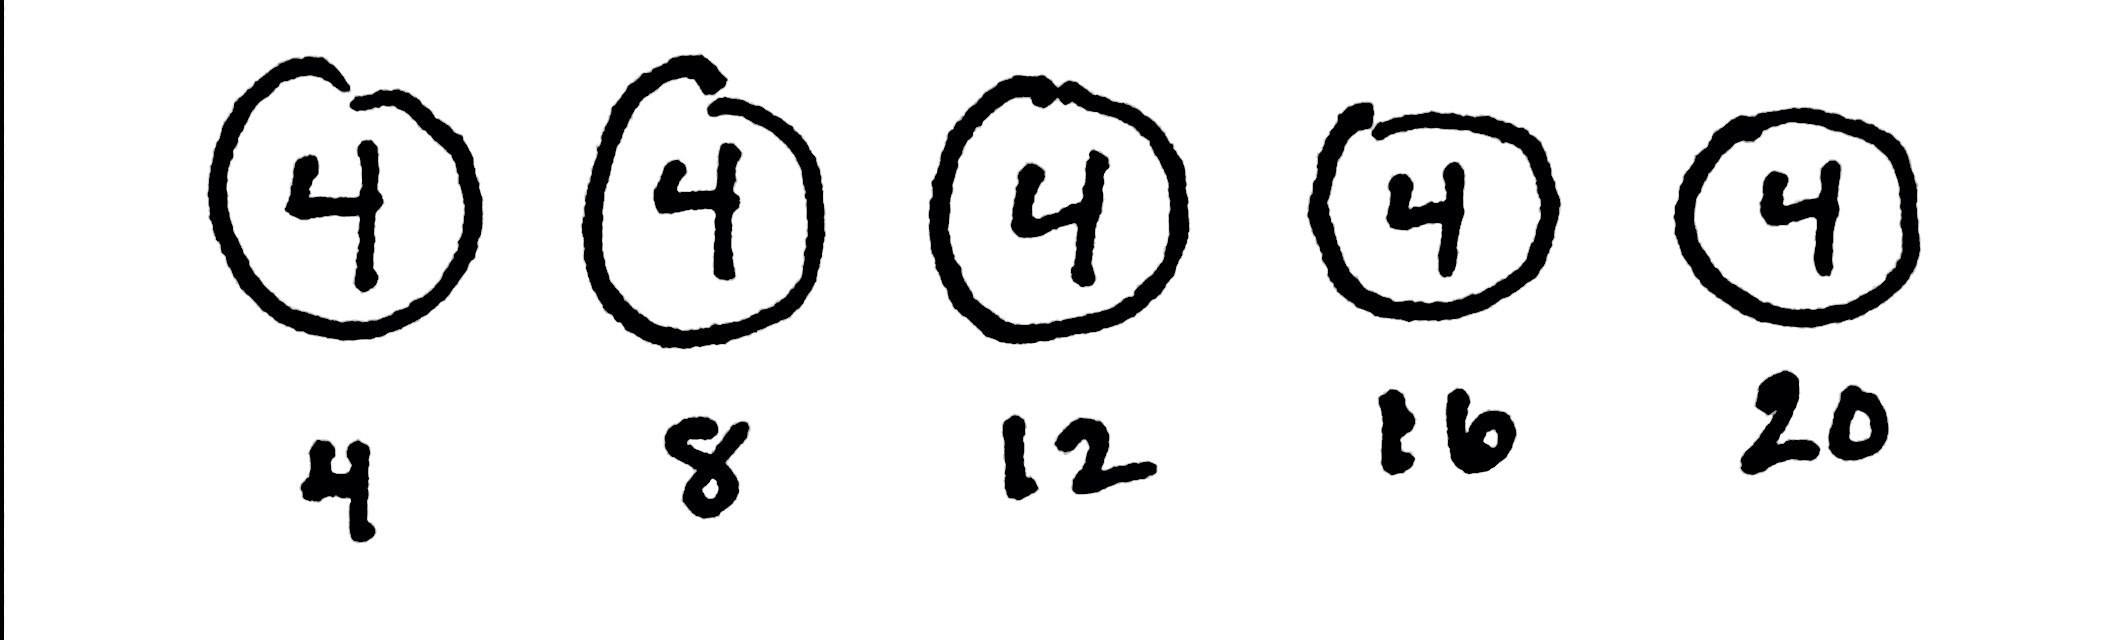 4 4 4 4 4
4 8 12 16 20